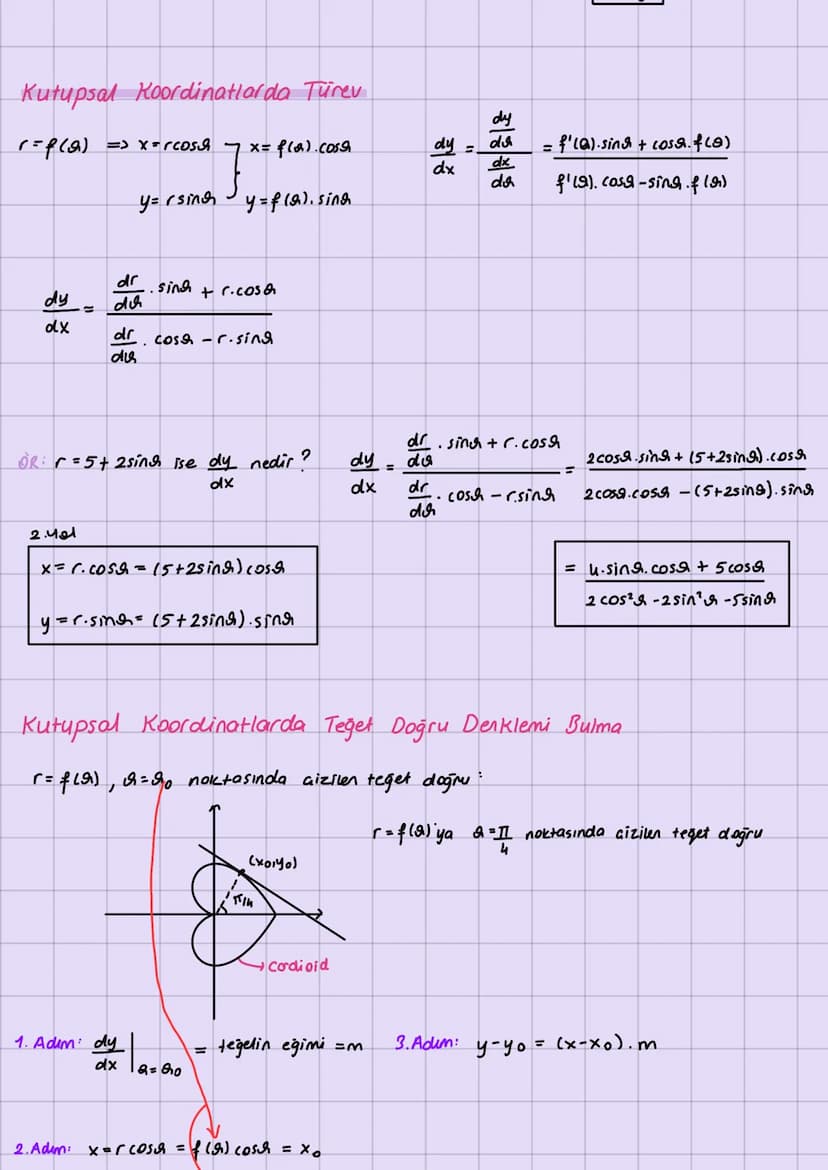 Kutupsal Koordinatlarda Türev
r=f(θ) => x=rcosθ } x=f(θ).cosθ
y=rsinθ } y=f(θ).sinθ
dy/dx = (dy/dθ)/(dx/dθ) = (f'(θ).sinθ + cosθ.f(θ))/(f'(θ).cosθ-sinθ.f(θ))
dy/dx = (dr/dθ.sinθ + r.cosθ)/(dr/dθ.cosθ - r.sinθ)
ÖR: r=5+2sinθ ise dy/dx nedir? dy/dx = (dr/dθ.sinθ + r.cosθ)/(dr/dθ.cosθ - rsinθ) = (2cosθ.sinθ + (5+2sinθ).cosθ)/(2cosθ.cosθ - (5+2sinθ).sinθ)
2.Yol
x= r.cosθ = (5+2sinθ)cosθ
y=r.sinθ= (5+2sinθ).sinθ
= (4.sinθ.cosθ + 5cosθ)/(2cos²θ -2sin²θ -5sinθ)
Kutupsal Koordinatlarda Teğet Doğru Denklemi Bulma
r=f(θ), θ=θ₀ noktasında çizilen teğet doğru:
r=f(θ)'ya θ=π/4 noktasında çizilen teğet doğru
(x₀,y₀)
π/4
Cardioid
1. Adım: dy/dx |θ=θ₀ = teğetin eğimi =m
3.Adım: y-y₀ = (x-x₀).m
2.Adım: x=rcosθ = f(θ)cosθ = x₀